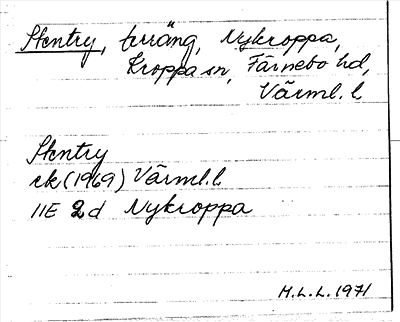 Stentry, terräng, Nykroppa,
Kroppa sn, Färnebo hd,
Värml. l.
Stentry
ek (1969) Värml. l.
11E 2d Nykroppa
M.L.L. 1971